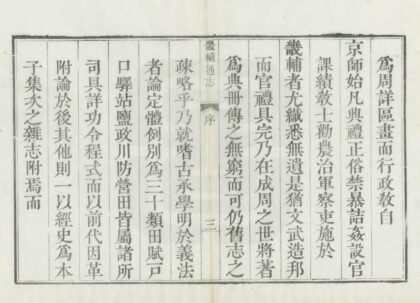 為周詳區畫而行政敎自
京師始凡典禮正俗禁暴詰姦設官
課績敎士勸農治軍察吏施於
畿輔者尤纖悉無遺是猶文武造邦
而官禮具完乃在成周之世將著
為典冊傳之無窮而可仍舊志之
畿輔通志
序
三
疎略乎乃就嗜古承學明於義法
者論定體例別為三十類田賦戸
口驛站鹽政川防營田皆屬諸所
司具詳功令程式而以前代因革
附論於後其他則一以經史為本
子集次之雜志附焉而